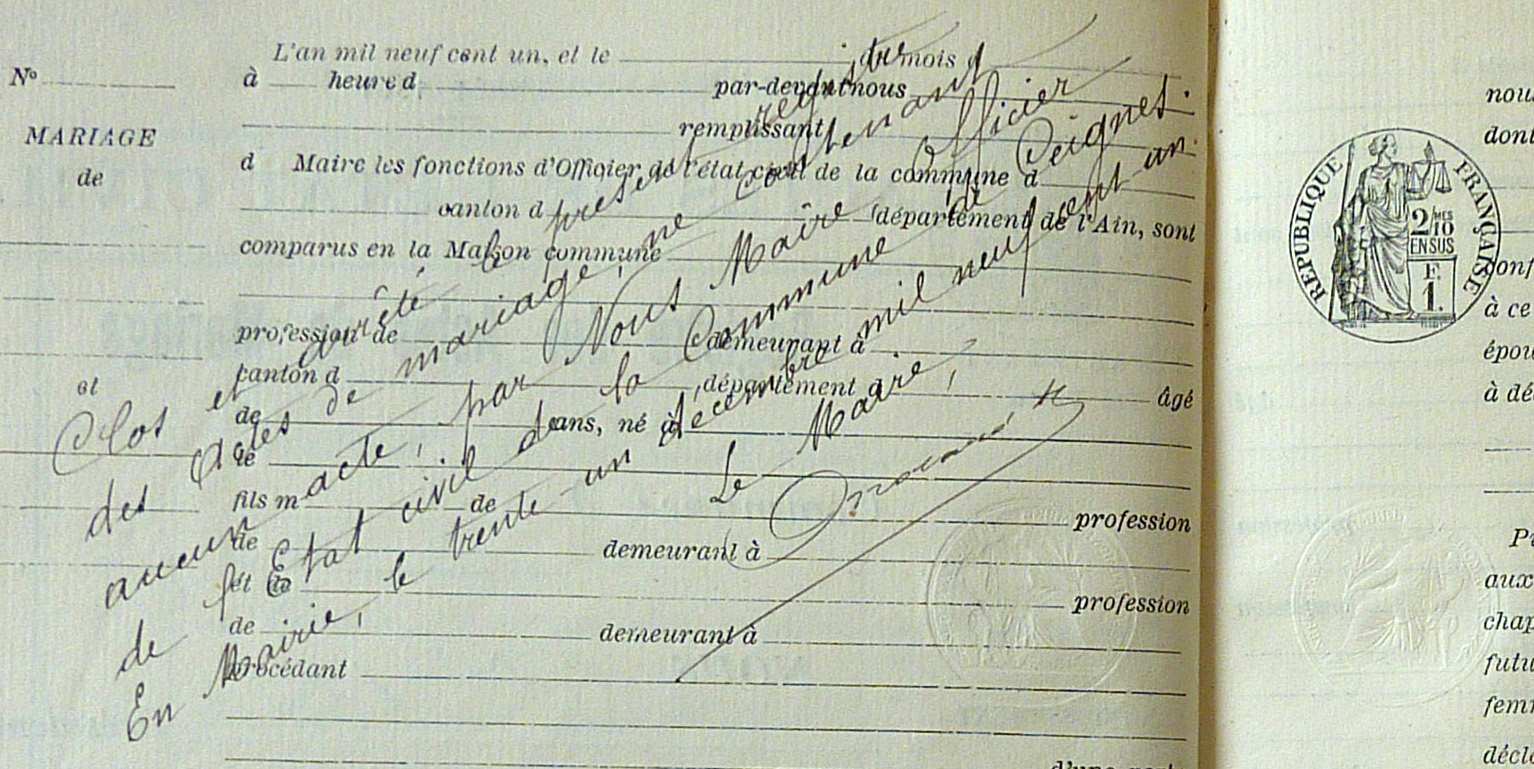 L'an mil neuf cent un, et le du mois d
N° à heure d par-devant nous
remplissant
MARIAGE
de
d Maire les fonctions d'Officier de l'état civil de la commune d
canton d département de l'Ain, sont
comparus en la Maison commune
profession de demeurant à
canton d département d âgé
et
de ans, né à
le
fils m de profession
de demeurant à
et de profession
de demeurant à
procédant
d'une part
Clos et arrêté le présent registre
des Actes de mariage, ne contenant
aucun acte, par Nous Maire Officier
de l'Etat civil de la Commune de Peignes.
En Mairie, le trente-un décembre mil neuf cent un.
Le Maire,
RÉPUBLIQUE FRANÇAISE
2/10
MES
EN SUS
F.
1.
nou
dont
conf
à ce
épou
à dé
Pr
aux
chap
futu
fem
décl